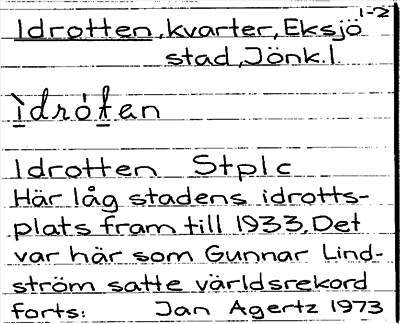 1-2
Idrotten, kvarter, Eksjö
stad, Jönk.l.
ìdròt̲an
Idrotten Stplc
Här låg stadens idrotts-
plats fram till 1933. Det
var här som Gunnar Lind-
ström satte världsrekord
forts: Jan Agertz 1973